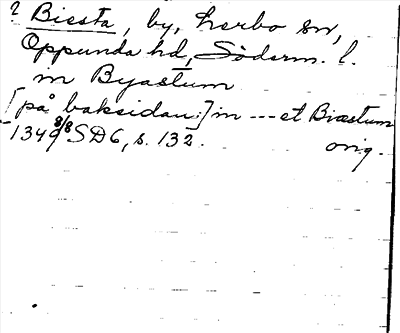 ? Biesta, by, Lerbo sn,
Oppunda hd, Söderm. l.
m Byastum
[på baksidan:] m --- et Biæstum
1349 8/8 SD6, s. 132. orig.